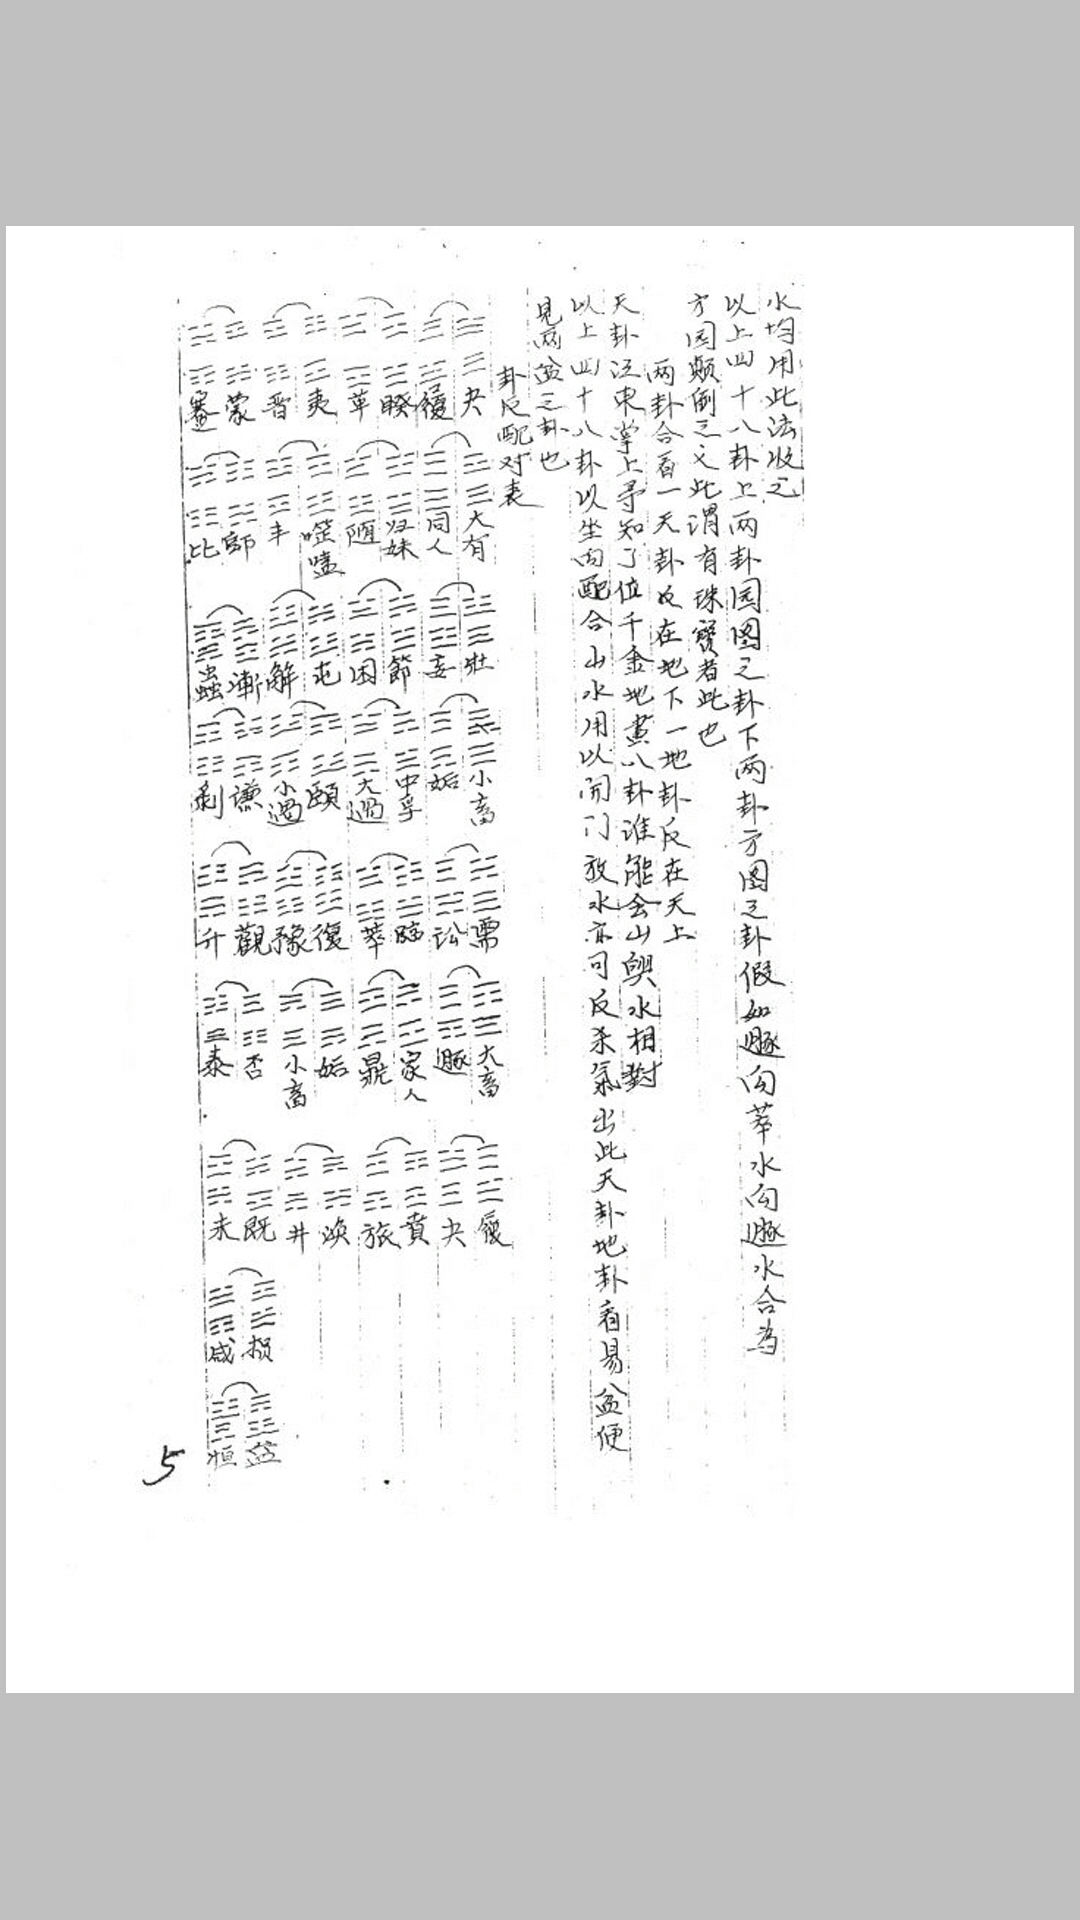 水均用此法收之
以上四十八卦上两卦园图之卦下两卦方图之卦假如遯向萃水向遯水合為
方园颠倒之义此谓有珠寳者此也
两卦合看一天卦反在地下一地卦反在天上
天卦江東掌上寻知了位千金地畫八卦谁能会山與水相對
以上四十八卦以坐向配合山水用以開门放水亦可反杀氣出此天卦地卦看易盆便
見两盆之卦也
卦反配对表
夬 履 睽 革 夷 晋 蒙 蹇
大有 同人 归妹 随 噬嗑 丰 師 比
壯 妄 節 困 屯 解 漸 蠱
小畜 姤 中孚 大過 頤 小過 謙 剥
需 讼 臨 萃 復 豫 觀 升
大畜 遯 家人 鼎 姤 小畜 否 泰
履 夬 賁 旅 渙 井 既 未
损 咸
益 恒
5